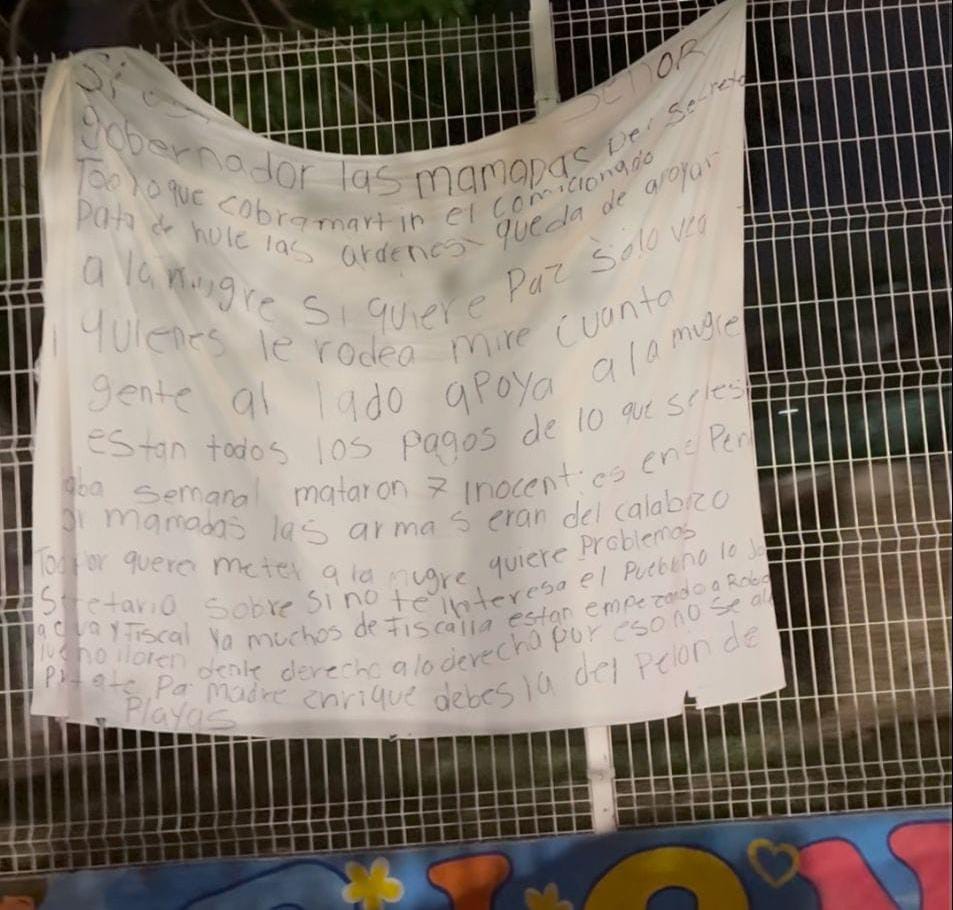 SEÑOR
gobernador las mamadas del secreta
Todo lo que cobra martin el comicionado
pata de hule las ardenes queda de apoyar
a la mugre si quiere Paz solo vea
quienes le rodea mire cuanta
gente al lado apoya a la mugre
estan todos los pagos de lo que seles
aba semanal mataron 7 inocenties en
or mamadas las arma s eran del calabozo
Todo por querer meter a la mugre quiere Problemas
Sicretario sobre si no te interesa el Puebeno lo
agua y fiscal Ya muchos de fiscalia estan empezando a Roba
no lloren denle derecho a lo derecho por eso no se
Pa madre enrique debes la del Pelon de
Playas
LOV